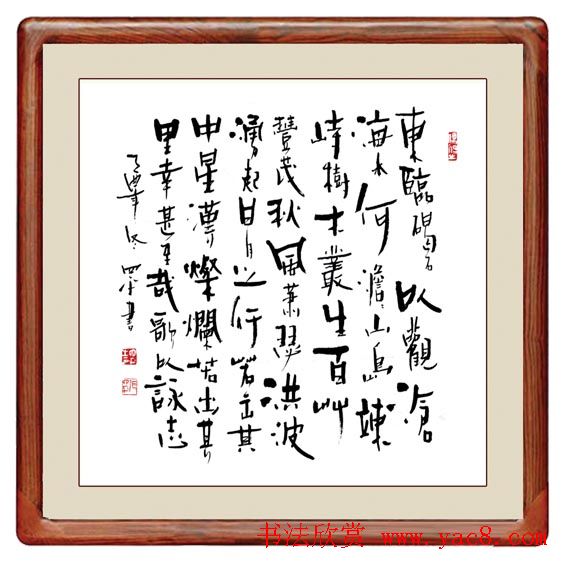 東臨碣石以觀滄
海水何澹〻山島竦
峙樹木叢生百艸
豐茂秋風蕭瑟洪波
湧起日月之行若出其
中星漢燦爛若出其
里幸甚至哉歌以詠志
冬書
书法欣赏 www.yac8.com